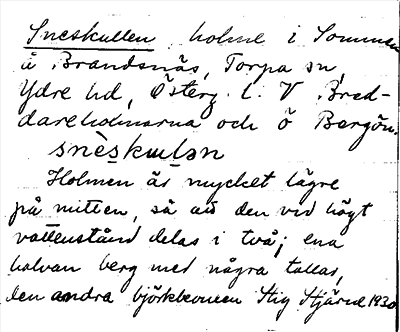 Sneskullen holme i Sommen
å Brandsnäs, Torpa sn,
Ydre hd, Österg. l. V Bred-
dareholmarna och ö Bergön.
snèskulən
Holmen är mycket lägre
på mitten, så att den vid högt
vattenstånd delas i två; ena
halvan berg med några tallar,
den andra björkbevuxen Stig Stjärud 1930